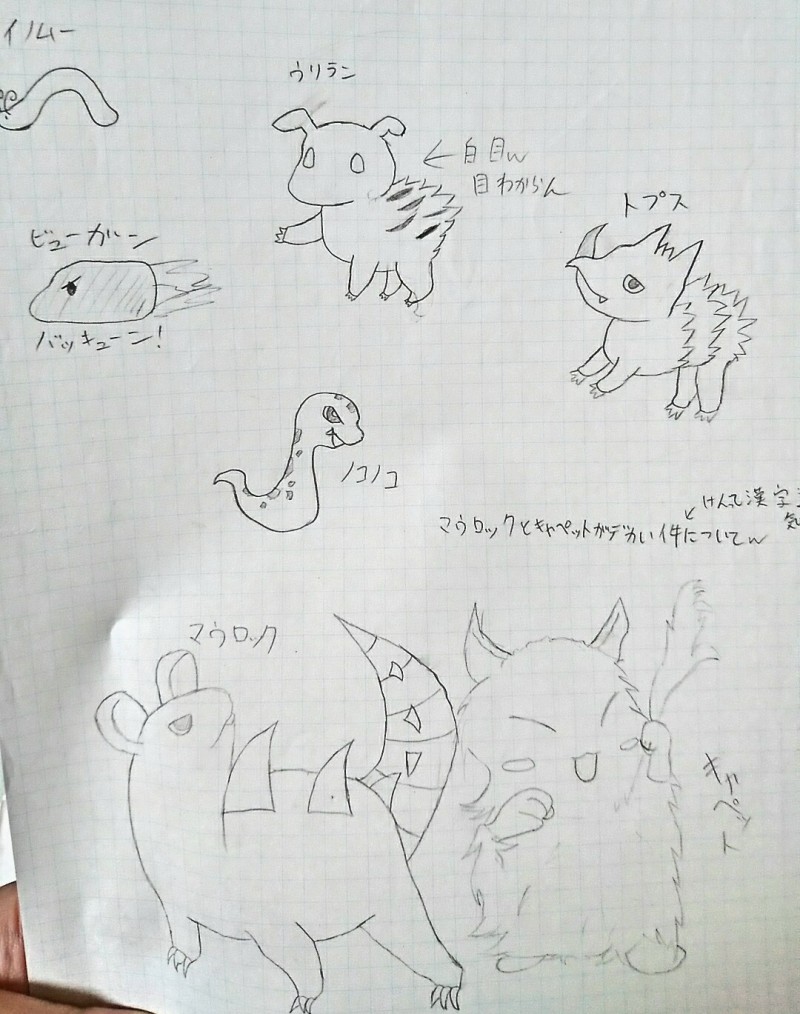 イノムー
ウリラン
← 白目w
目わからん
トプス
ビューガーン
バッキューン!
ノコノコ
けんて漢字
マウロックとキャペットがデカい件についてw
マウロック
キャペット